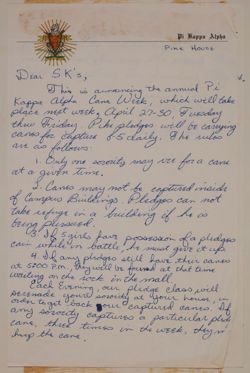 Pi Kappa Alpha
PIKE HOUSE
Dear SK's,
This is announcing the annual Pi
Kappa Alpha Cane Week, which will take
place next week, April 27-30. Tuesday
thru Friday, Pike pledges will be carrying
canes for capture 8-5 daily. The rules
are as follows:
1. Only one sorority may vie for a cane
at a given time.
2. Canes may not be captured inside
of Campus Buildings. Pledges can not
take refuge in a building if he is
being pursued.
3. If 5 girls have possession of a pledges
cain while in battle, he must give it up.
4. If any pledges still have their canes
at 5:00 P.M. they will be found at that time
waiting on the rock in the mall.
Each Evening, our pledge class will
serenade your sorority at your house, in
order to get back our captured canes. If
any sorority captures a particular pledge
cane, three times in the week, they
keep the cane.